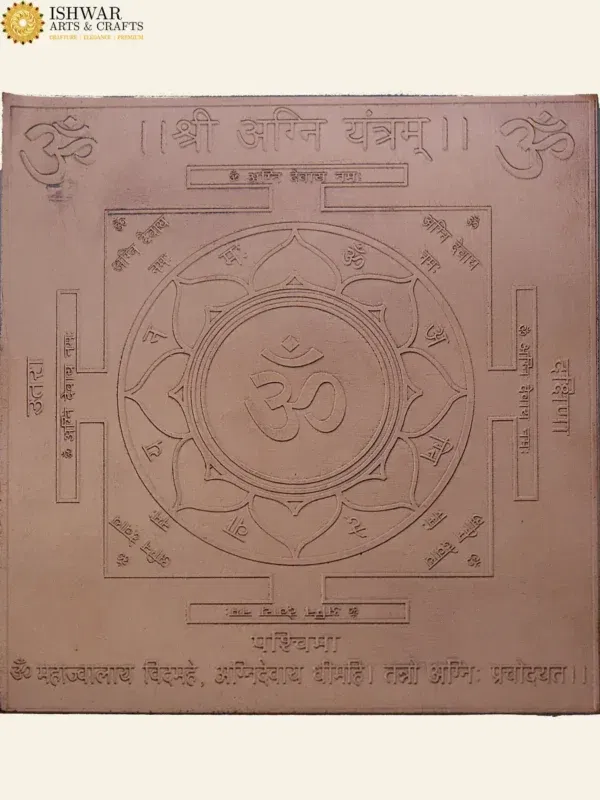 ISHWAR
ARTS & CRAFTS
CRAFTURE | ELEGANCE | PREMIUM
ॐ ||श्री अग्नि यंत्रम्|| ॐ
ॐ अग्नि देवाय नमः
ॐ अग्नि देवाय नमः
ॐ अग्नि देवाय नमः
मः ॐ
न अ
ॐ
य ग्नि
वा दे
उतरा
ॐ अग्नि देवाय नमः
ॐ अग्नि देवाय नमः
दक्षिणा
ॐ अग्नि देवाय नमः
ॐ अग्नि देवाय नमः
ॐ अग्नि देवाय नमः
पश्चिमा
ॐ महाज्वालाय विदमहे, अग्निदेवाय धीमहि। तन्नो अग्निः प्रचोदयत।।